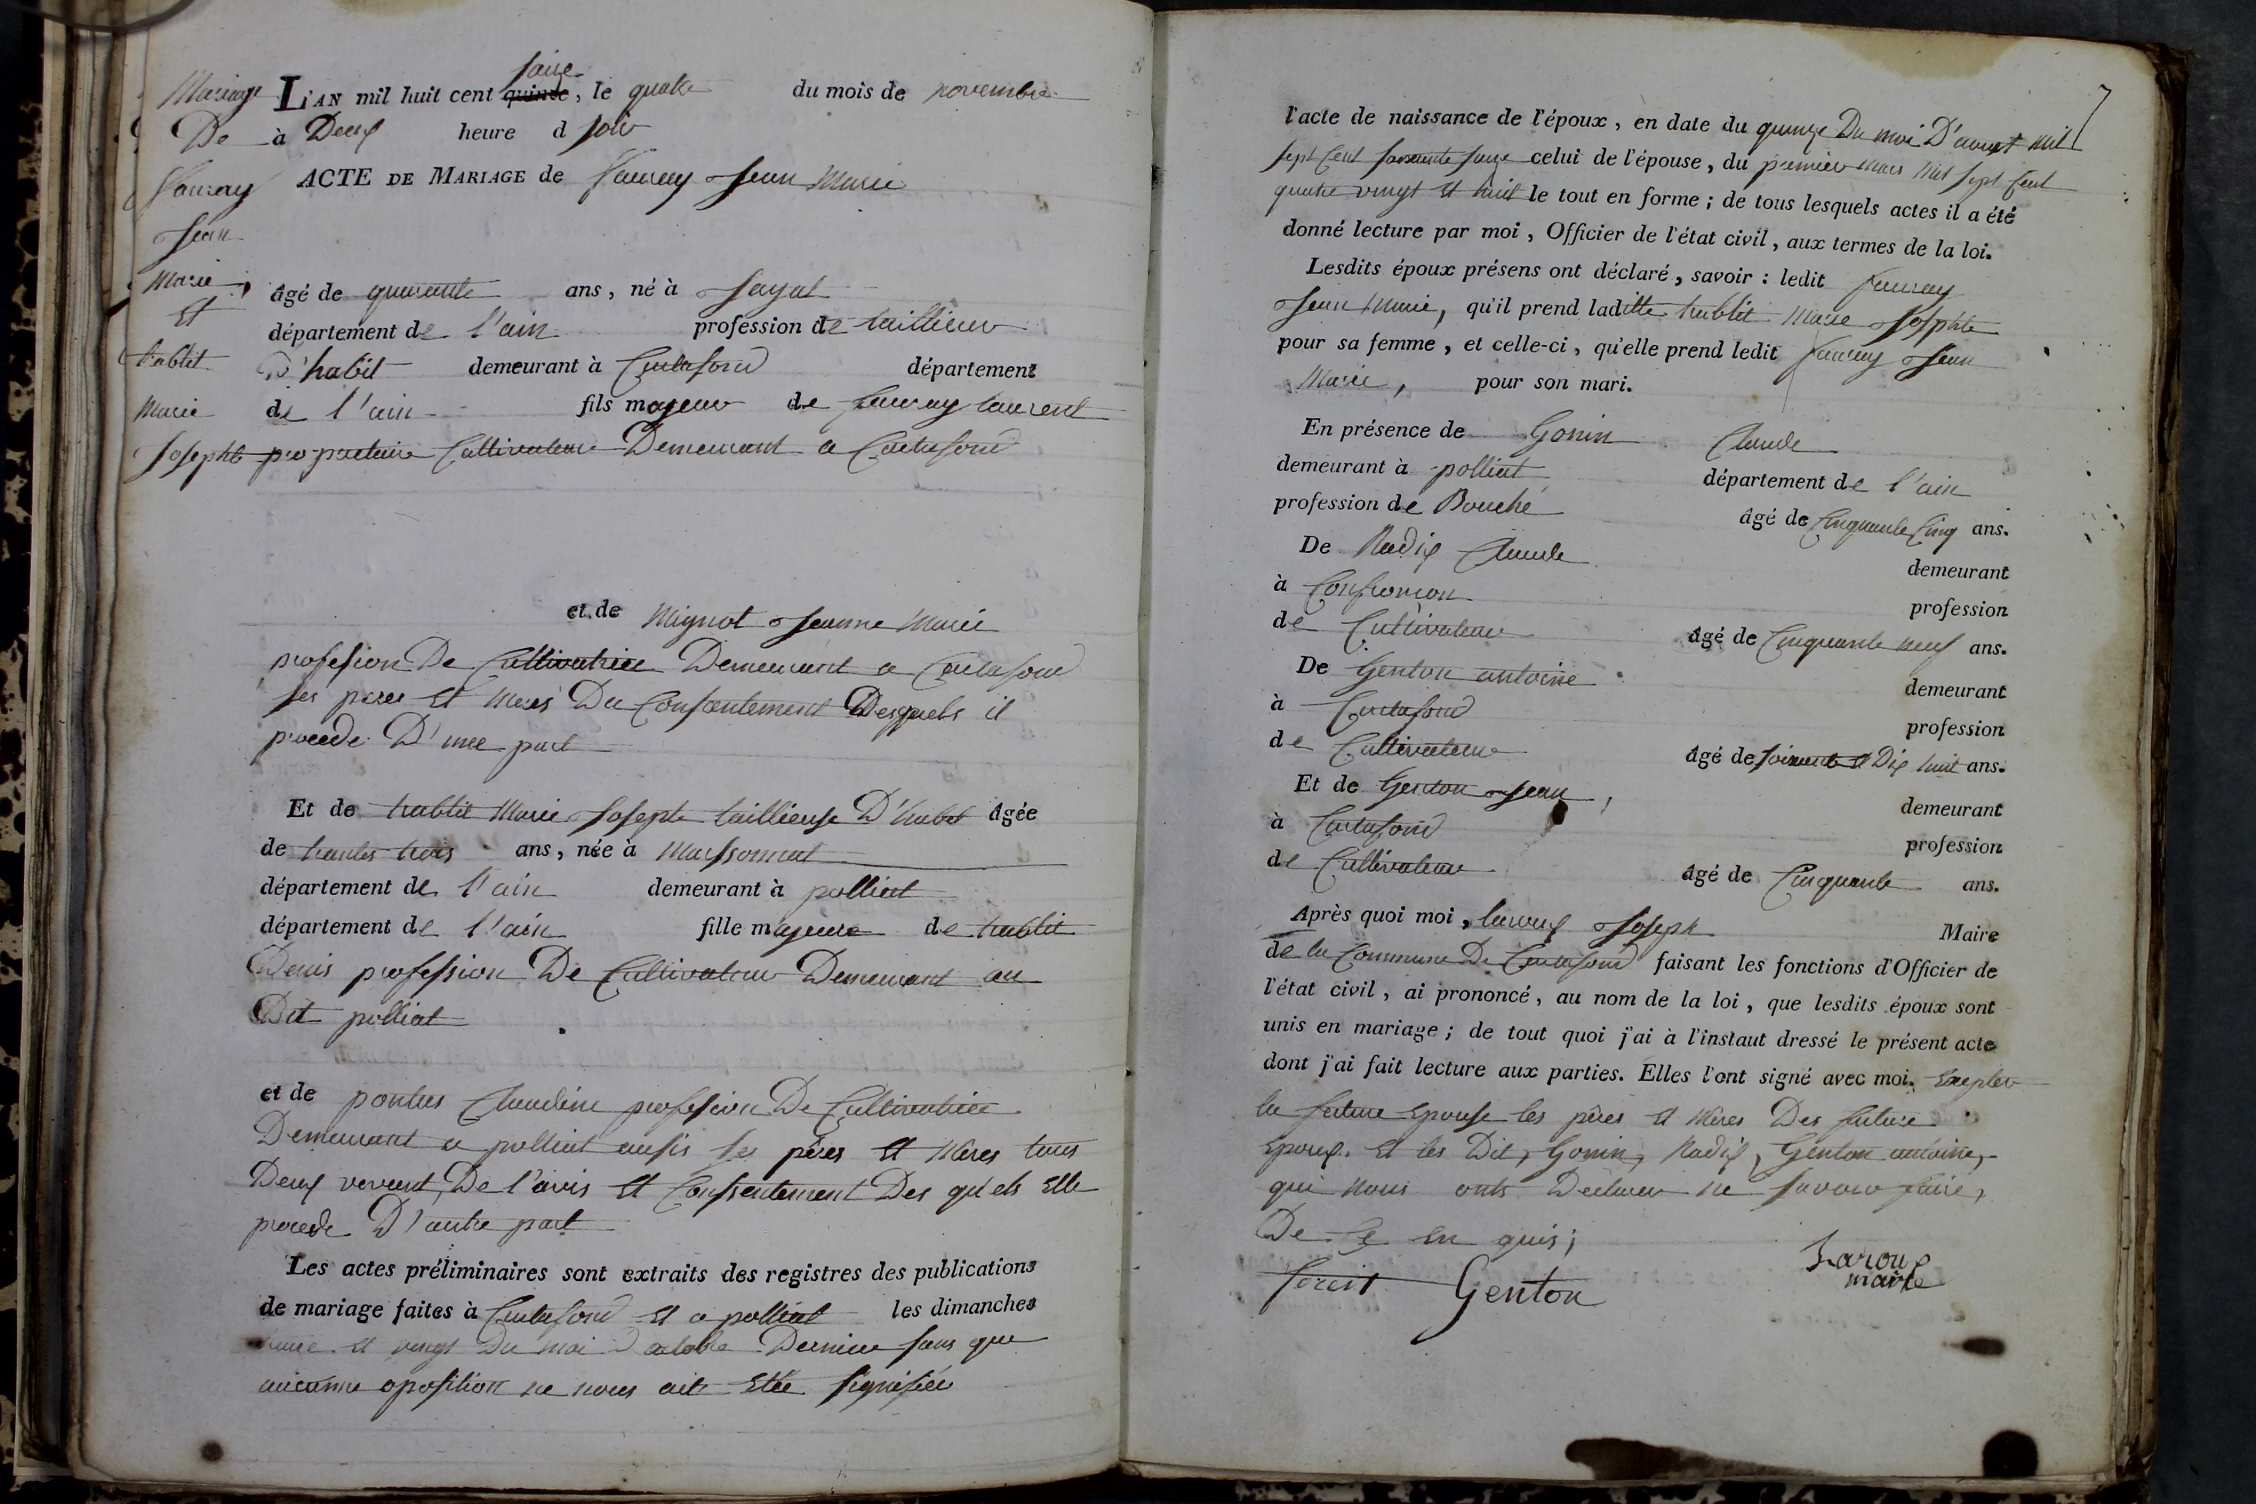 Mariage
De
Fauray
Jean
Marie
Et
trablit
Marie
Josephte
L'AN mil huit cent quinze saize, le quatre du mois de novembre
à Deux heure d soir
ACTE DE MARIAGE de Fauray Jean Marie
âgé de quarante ans, né à Jayat
département de l'ain profession de taillieur
D'habit demeurant à Curtafond département
de l'ain fils majeur de fauray laurent
proprietaire Cultivateur Demeurant a Curtafond
et de Mignot Jeanne Marie
profesion De Cultivatrice Demeurant a Curtafond
ses peres et meres Du Consantement Desquels il
procede D'une part
Et de trablit Marie Josephte taillieuse D'habit âgée
de trantes trois ans, née à Marssonnat
département de l'ain demeurant à polliat
département de l'ain fille majeure de trablit
Denis profession De Cultivateur Demeurant au
Dit polliat
et de pontus Claudine profesion De Cultivatrice
Demeurant a polliat ausis ses pères et Mères tous
Deux vevent, De l'avis et Conssentement Des quels Elle
procede D'autre part
Les actes préliminaires sont extraits des registres des publications
de mariage faites à Curtafond et a polliat les dimanches
et vingt Du moi D'octobre Dernier sans que
aucunne oposition ne nous ait Etée signifiée
7
l'acte de naissance de l'époux, en date du quinze Du moi D'aoust mil
sept Cent soixante saize celui de l'épouse, du premier mars Mil sept Cent
quatre vingt et huit le tout en forme; de tous lesquels actes il a été
donné lecture par moi, Officier de l'état civil, aux termes de la loi.
Lesdits époux présens ont déclaré, savoir: ledit fauray
Jean Marie, qu'il prend laditte trablit Marie Josphte
pour sa femme, et celle-ci, qu'elle prend ledit fauray Jean
Marie, pour son mari.
En présence de Gonin Claude
demeurant à polliat département de l'ain
profession de Bouché âgé de Cinquante Cinq ans.
De Radix Claude demeurant
à Confrancon profession
de Cultivateur âgé de Cinquante neuf ans.
De Genton antoine demeurant
à Curtafond profession
de Cultivateur âgé de soixante et Dix huit ans.
Et de Genton Jean, demeurant
à Curtafond profession
de Cultivateur âgé de Cinquante ans.
Après quoi moi, laroux Joseph Maire
de la Commune De Curtafond faisant les fonctions d'Officier de
l'état civil, ai prononcé, au nom de la loi, que lesdits époux sont
unis en mariage; de tout quoi j'ai à l'instaut dressé le présent acte
dont j'ai fait lecture aux parties. Elles l'ont signé avec moi. Exepter
la future Epouse les pères et Mères Des future
Epoux. et les Dit, Gonin, Radix, Genton antoine,
qui nous onts Declarer ne savoir faire,
De Ce En quis;
Genton
Laroux
maire